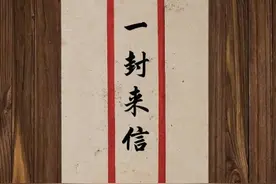 一封来信